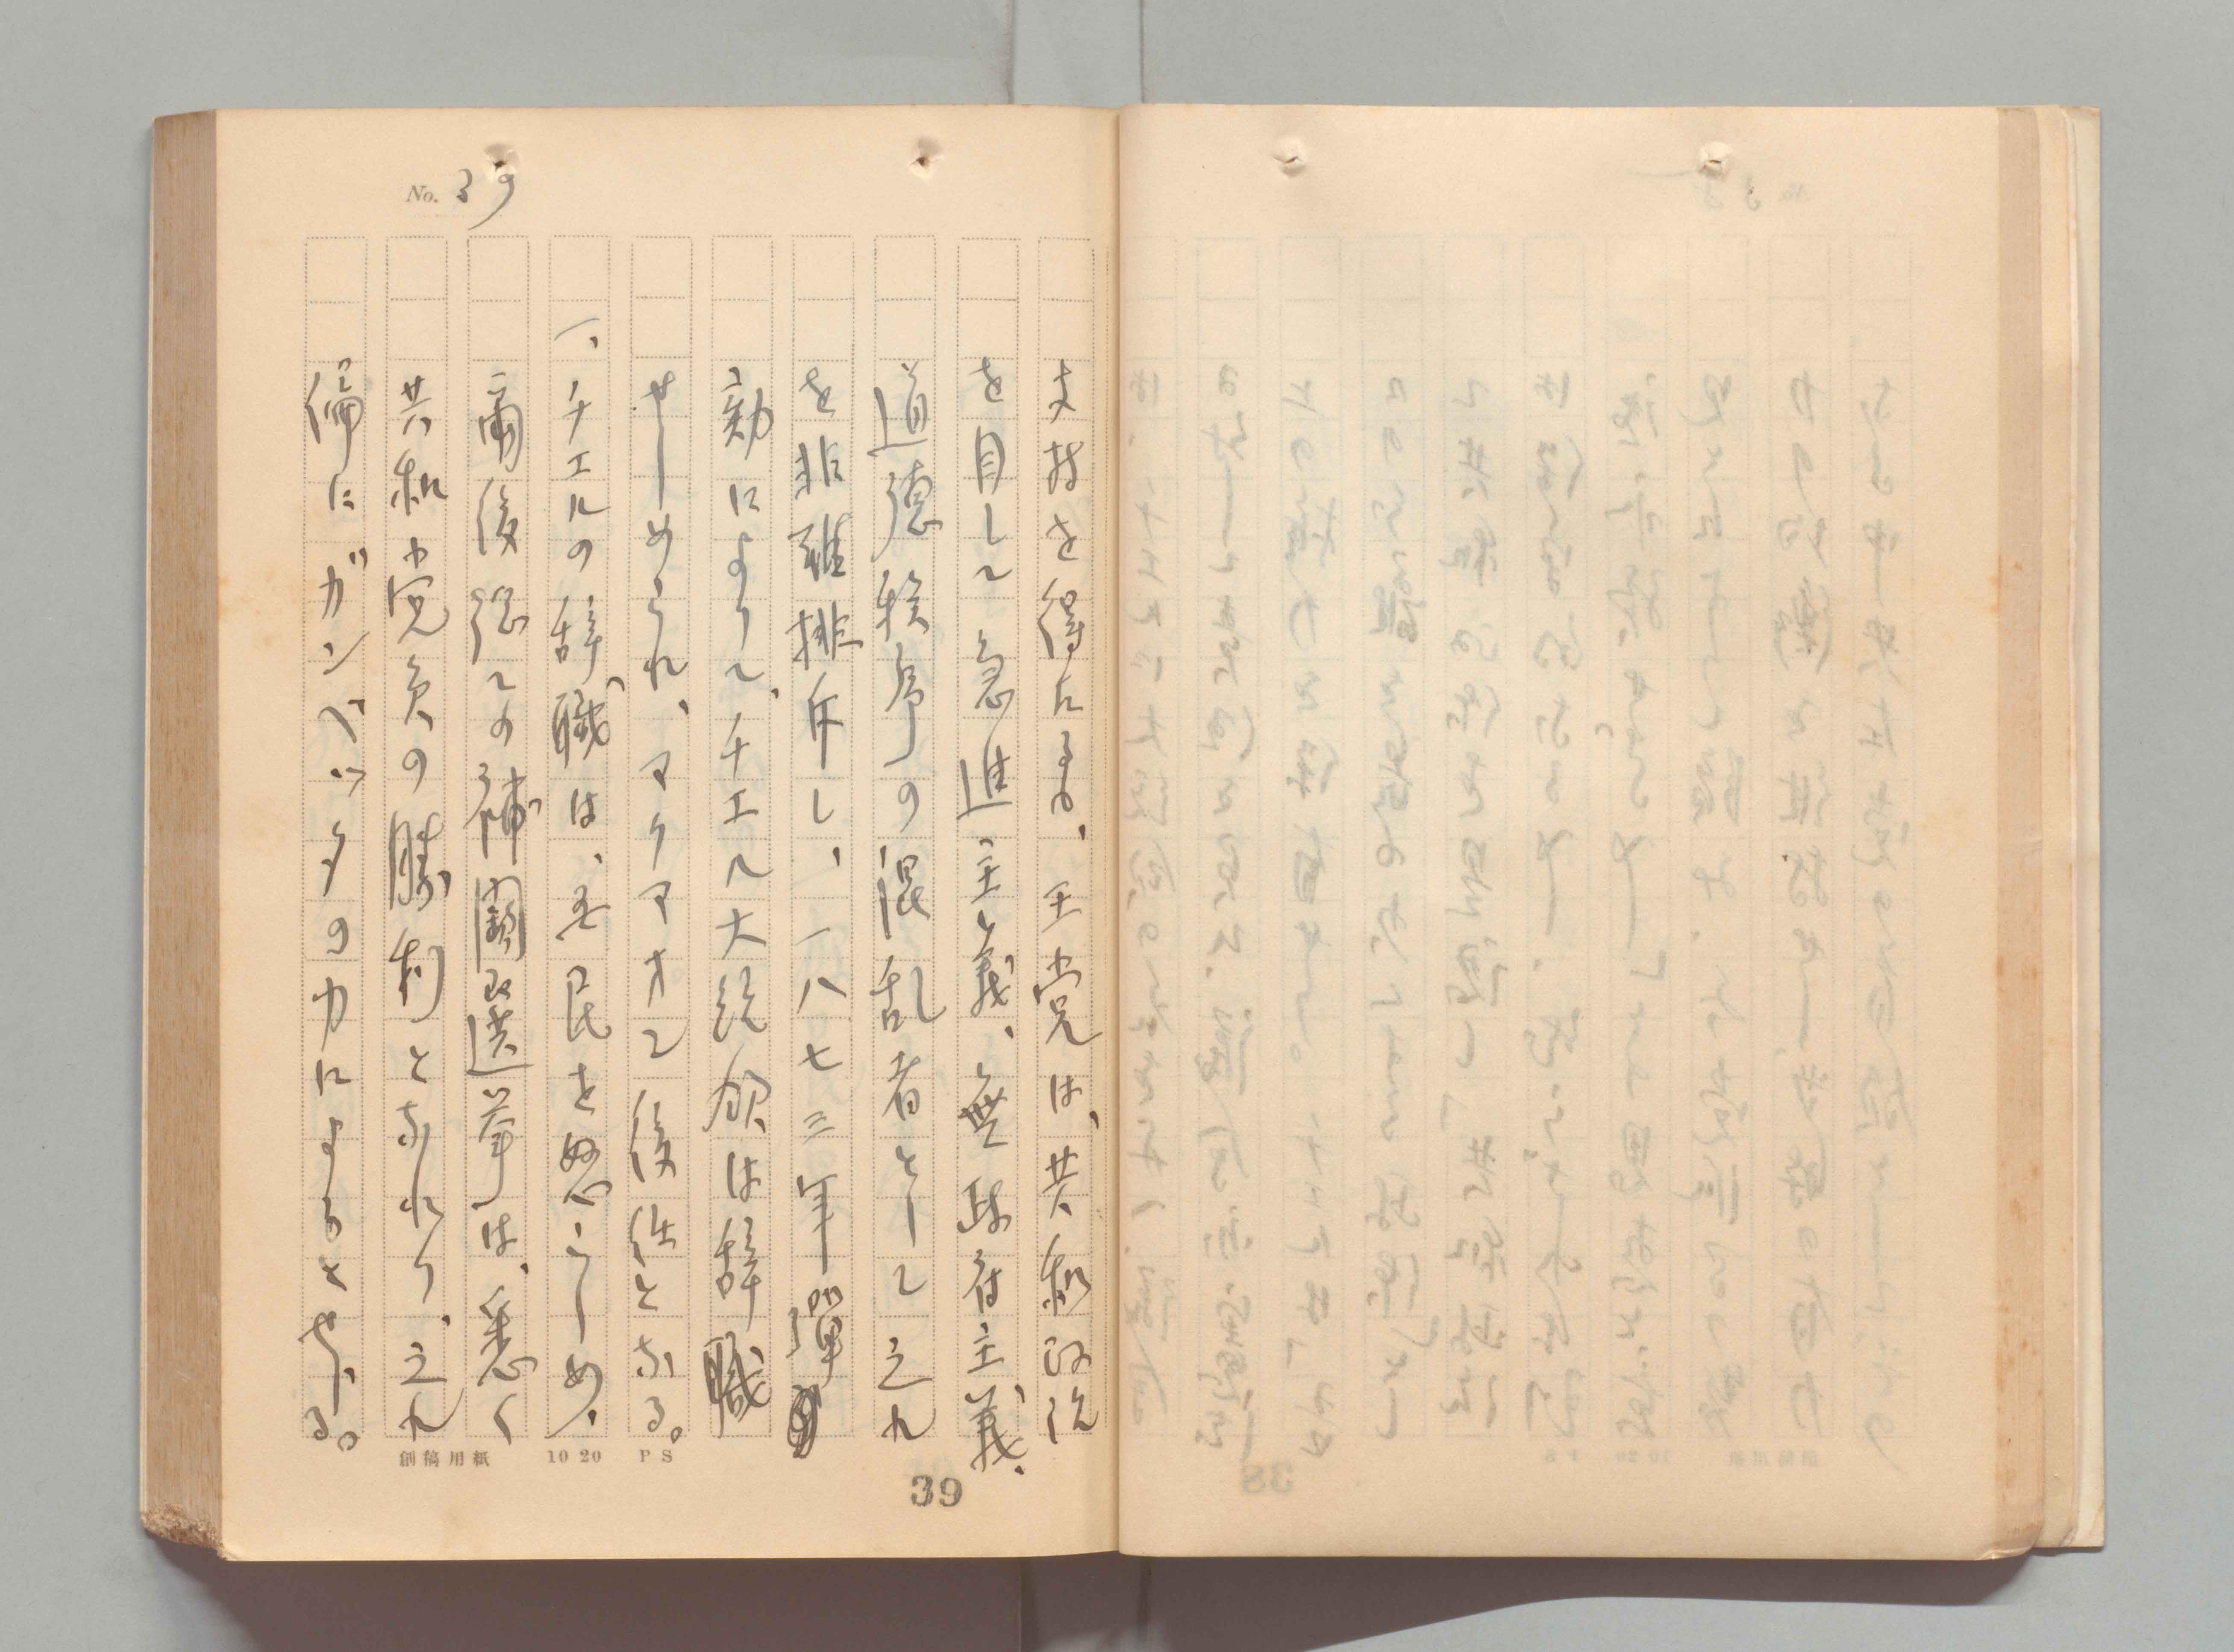 No. 39
支持を得たる、王党は、共和政治
を目して急進主義、無政府主義、
道徳秩序の混乱者として之れ
を非難排斥し、一八七三年弾
劾によりて、チエル大統領は辞職
せしめられ、マクマオン後任となる。
一、チエルの辞職は、吾民を怒らしめ、
爾後総ての補闕改選挙は、悉く
共和党員の勝利となれり、之れ
偏にガンベッタの力によるとせらる。
創稿用紙 10 20 P S
39